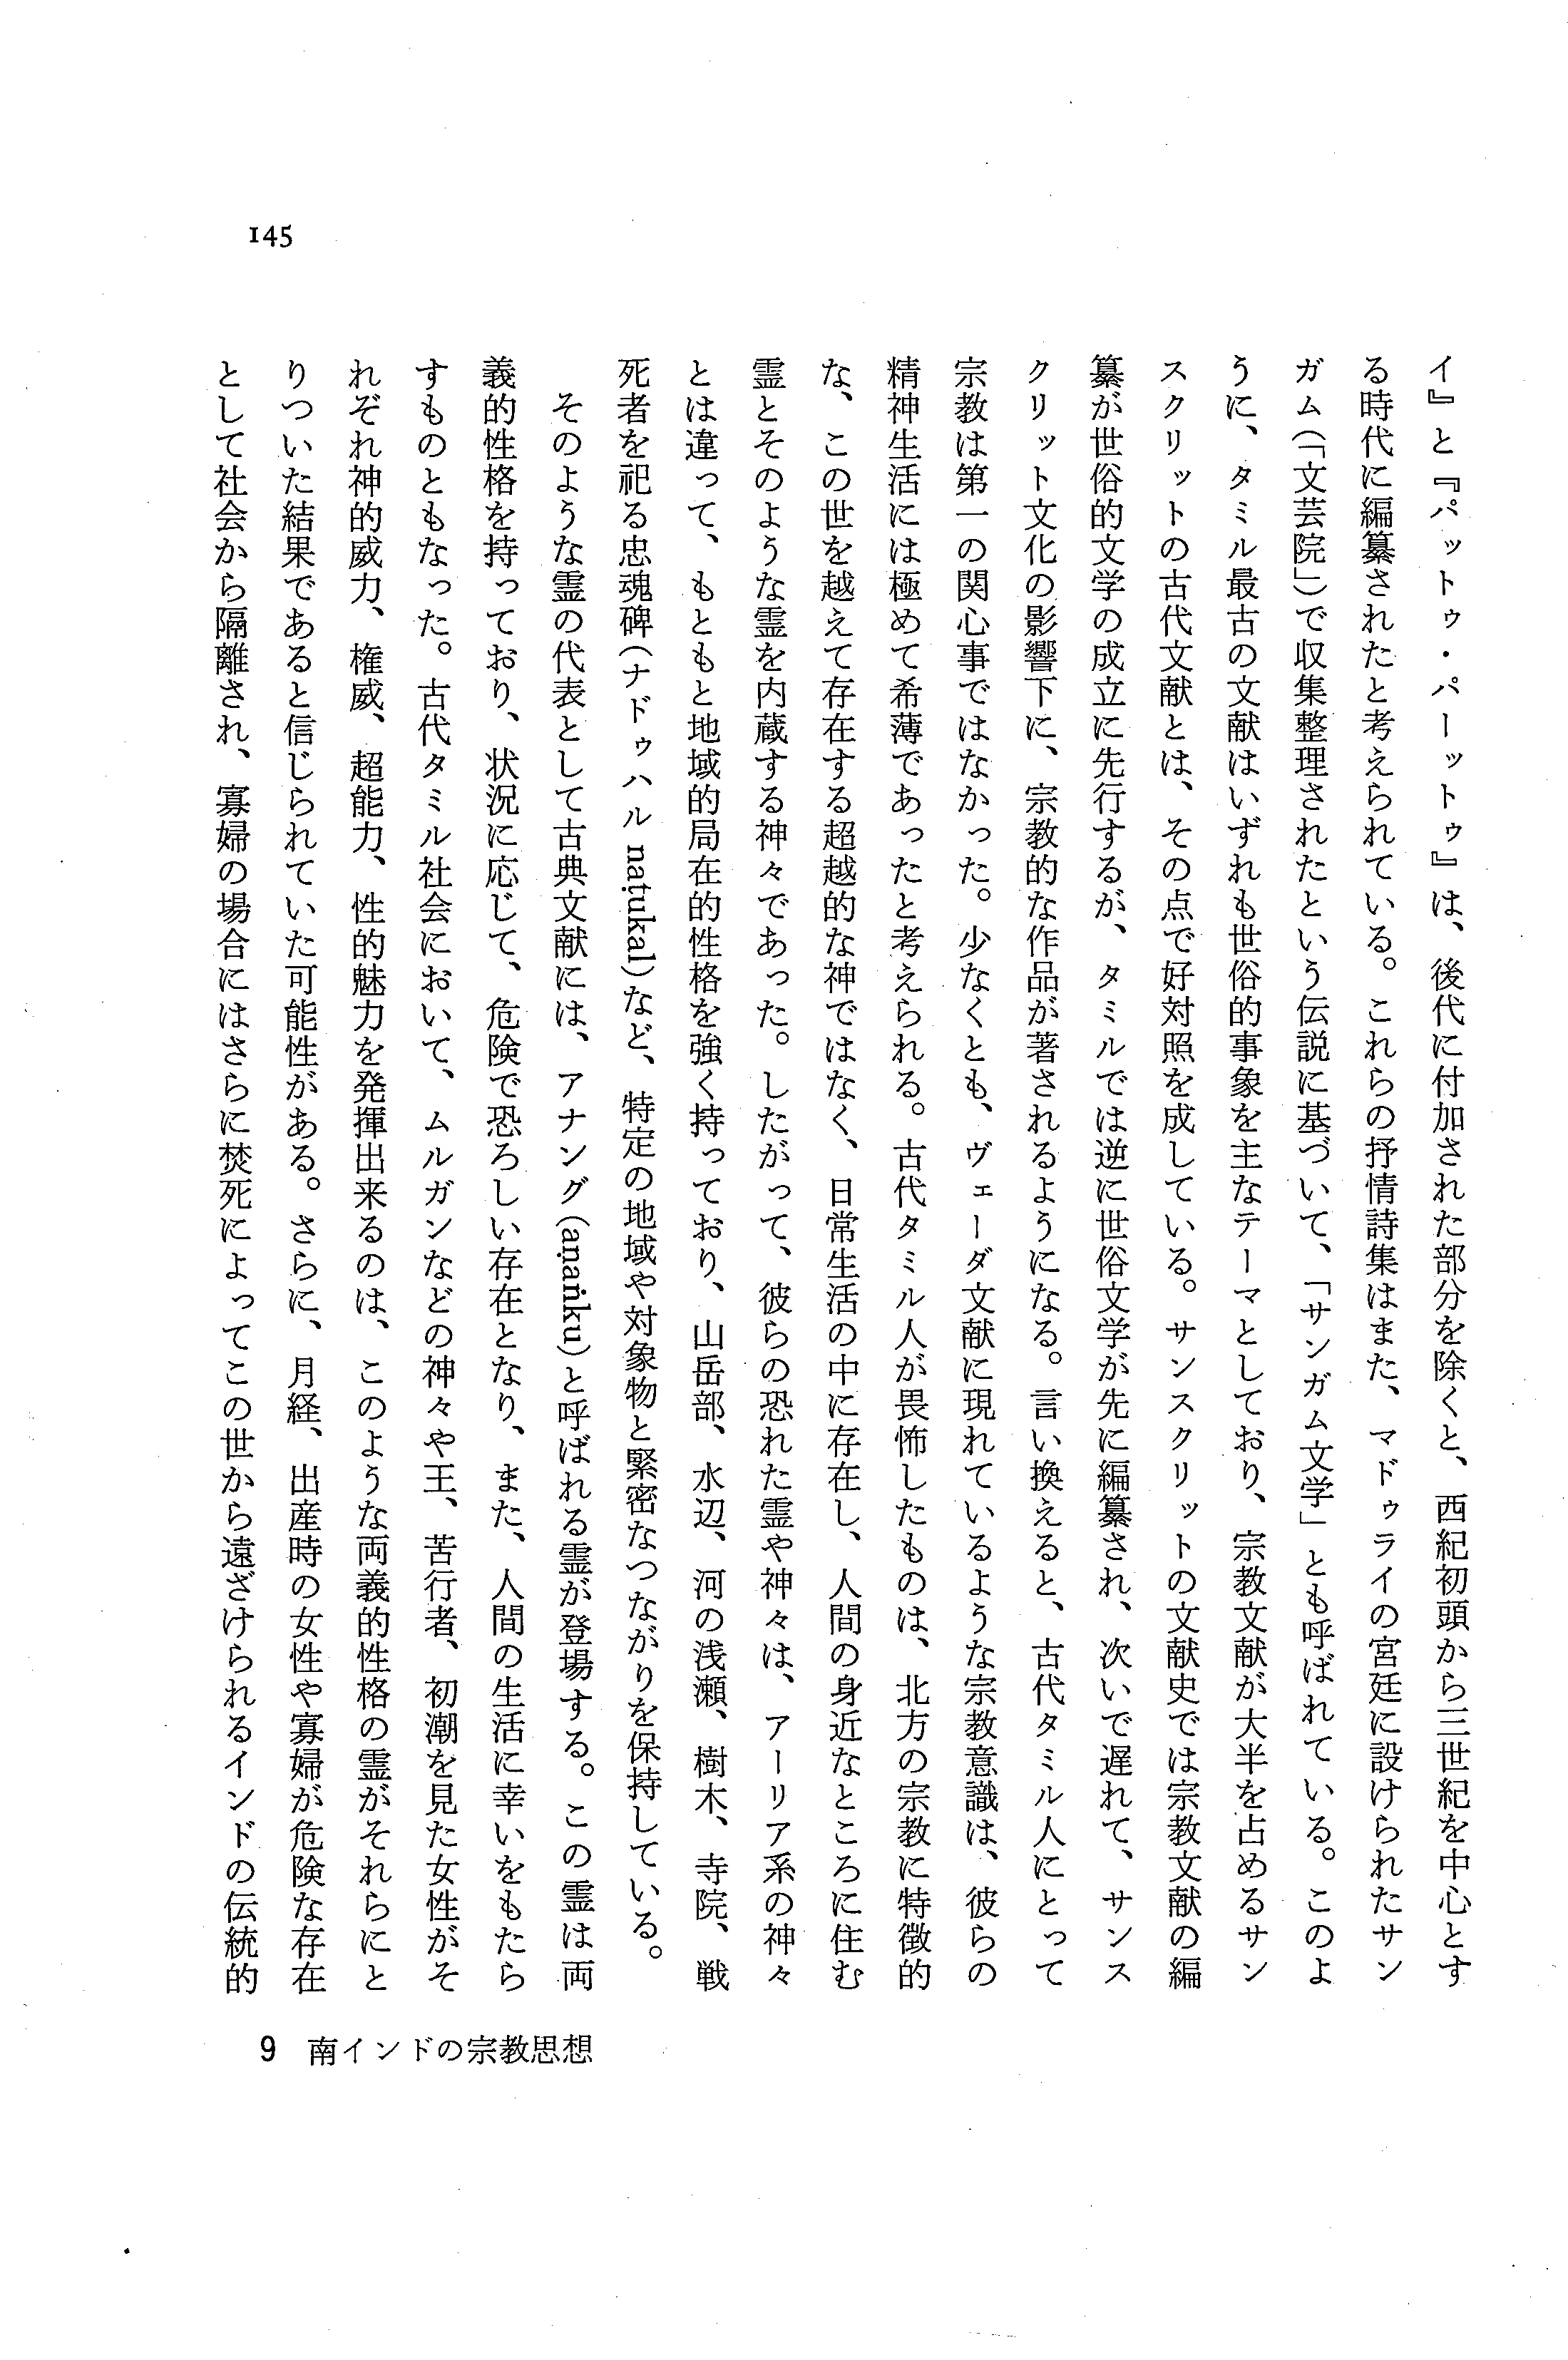 イ』と『パットゥ・パーットゥ』は、後代に付加された部分を除くと、西紀初頭から三世紀を中心とす
る時代に編纂されたと考えられている。これらの抒情詩集はまた、マドゥライの宮廷に設けられたサン
ガム(「文芸院」)で収集整理されたという伝説に基づいて、「サンガム文学」とも呼ばれている。このよ
うに、タミル最古の文献はいずれも世俗的事象を主なテーマとしており、宗教文献が大半を占めるサン
スクリットの古代文献とは、その点で好対照を成している。サンスクリットの文献史では宗教文献の編
纂が世俗的文学の成立に先行するが、タミルでは逆に世俗文学が先に編纂され、次いで遅れて、サンス
クリット文化の影響下に、宗教的な作品が著されるようになる。言い換えると、古代タミル人にとって
宗教は第一の関心事ではなかった。少なくとも、ヴェーダ文献に現れているような宗教意識は、彼らの
精神生活には極めて希薄であったと考えられる。古代タミル人が畏怖したものは、北方の宗教に特徴的
な、この世を越えて存在する超越的な神ではなく、日常生活の中に存在し、人間の身近なところに住む
霊とそのような霊を内蔵する神々であった。したがって、彼らの恐れた霊や神々は、アーリア系の神々
とは違って、もともと地域的局在的性格を強く持っており、山岳部、水辺、河の浅瀬、樹木、寺院、戦
死者を祀る忠魂碑(ナドゥハル naṭukal)など、特定の地域や対象物と緊密なつながりを保持している。
そのような霊の代表として古典文献には、アナング(aṇaṅku)と呼ばれる霊が登場する。この霊は両
義的性格を持っており、状況に応じて、危険で恐ろしい存在となり、また、人間の生活に幸いをもたら
すものともなった。古代タミル社会において、ムルガンなどの神々や王、苦行者、初潮を見た女性がそ
れぞれ神的威力、権威、超能力、性的魅力を発揮出来るのは、このような両義的性格の霊がそれらにと
りついた結果であると信じられていた可能性がある。さらに、月経、出産時の女性や寡婦が危険な存在
として社会から隔離され、寡婦の場合にはさらに焚死によってこの世から遠ざけられるインドの伝統的
145
9 南インドの宗教思想